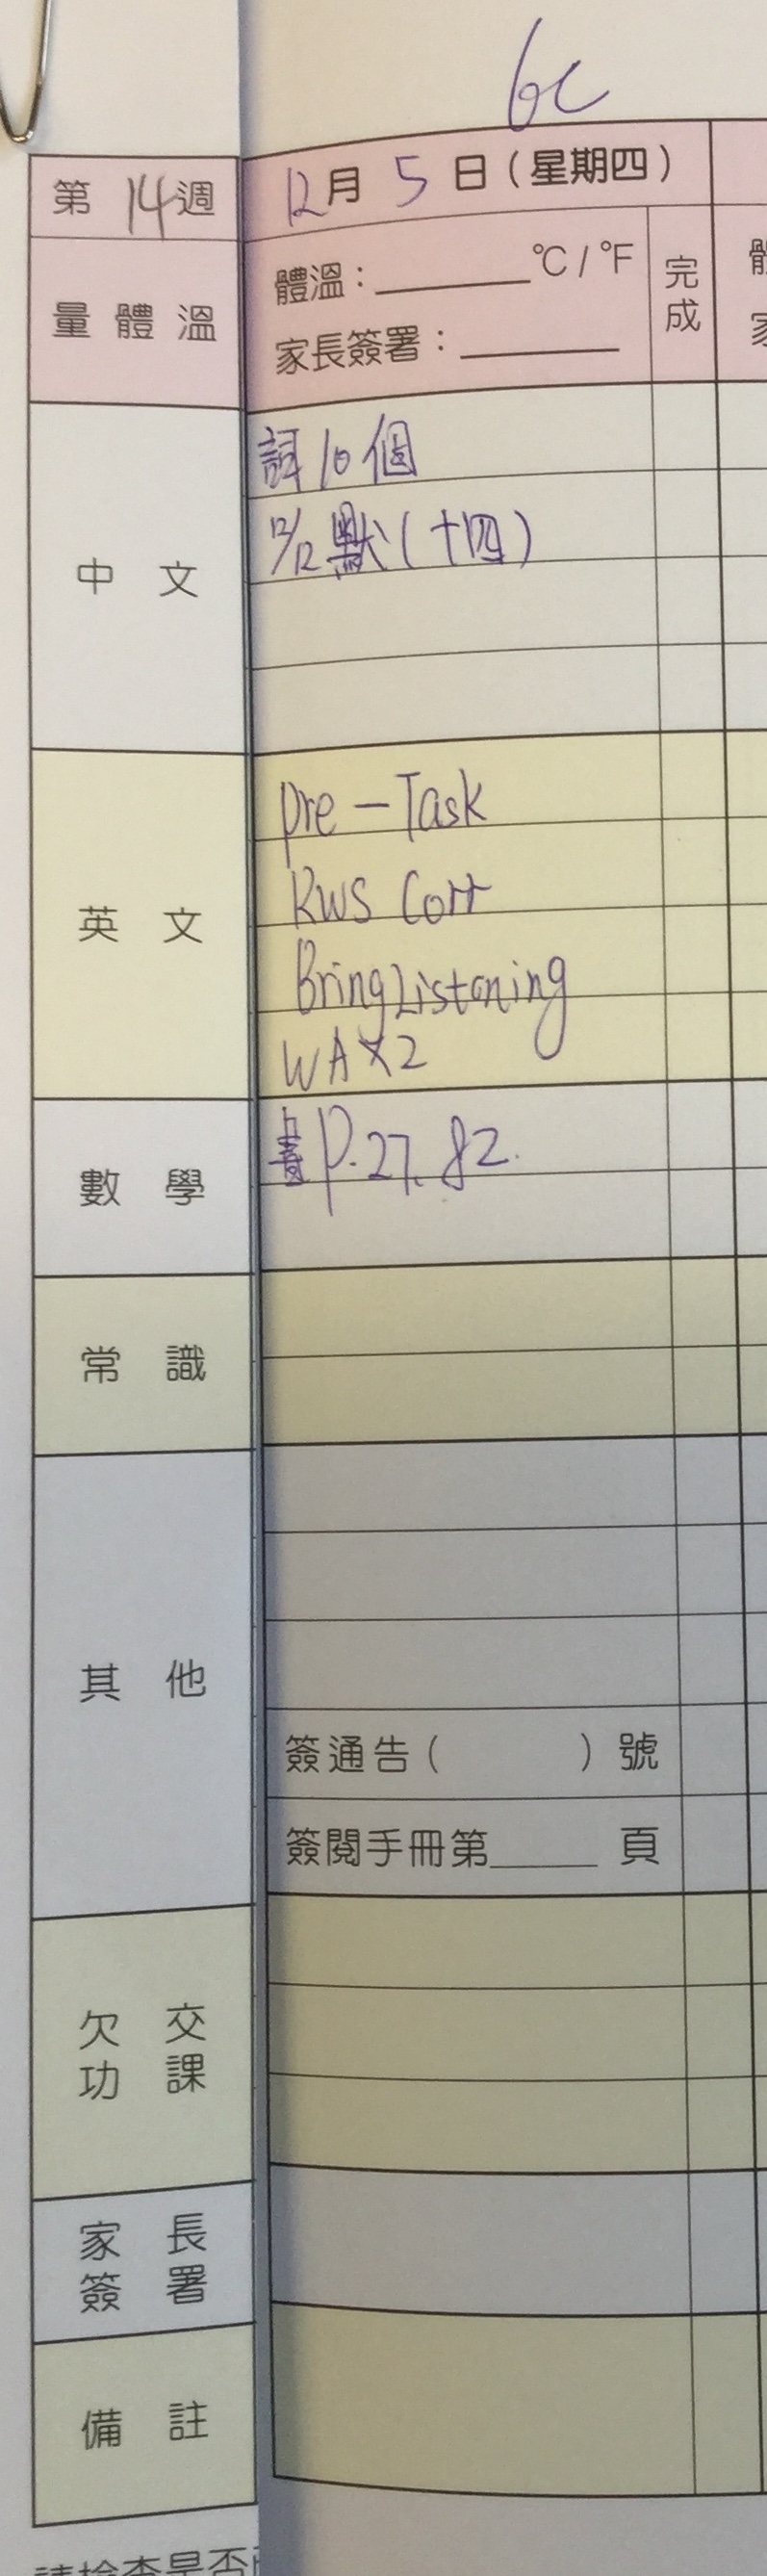 6C
第14週
12月5日(星期四)
量體溫
體溫：______°C/°F
家長簽署：______
完成
中文
詞10個
12/12默(十四)
英文
Pre-Task
RWS Corr
Bring Listening
WA X2
數學
書P.27. 82.
常識
其他
簽通告( )號
簽閱手冊第_____頁
欠交功課
家長簽署
備註
請檢查是否